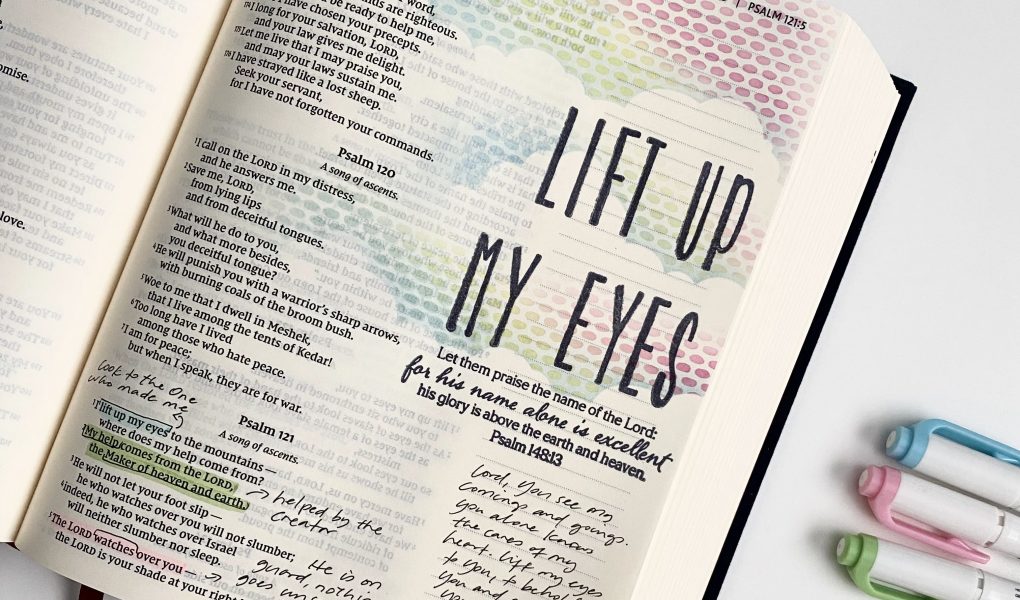 omise.
love.
word,
ands are righteous.
be ready to help me,
I have chosen your precepts.
174 I long for your salvation, LORD,
and your law gives me delight.
175 Let me live that I may praise you,
and may your laws sustain me.
176 I have strayed like a lost sheep.
Seek your servant,
for I have not forgotten your commands.
Psalm 120
A song of ascents.
1 I call on the LORD in my distress,
and he answers me.
2 Save me, LORD,
from lying lips
and from deceitful tongues.
3 What will he do to you,
and what more besides,
you deceitful tongue?
4 He will punish you with a warrior's sharp arrows,
with burning coals of the broom bush.
5 Woe to me that I dwell in Meshek,
that I live among the tents of Kedar!
6 Too long have I lived
among those who hate peace.
7 I am for peace;
but when I speak, they are for war.
look to the One
who made me
Psalm 121
A song of ascents.
1 I lift up my eyes to the mountains—
where does my help come from?
2 My help comes from the LORD,
the Maker of heaven and earth.
helped by the
Creator
3 He will not let your foot slip—
he who watches over you will not slumber;
4 indeed, he who watches over Israel
will neither slumber nor sleep.
5 The LORD watches over you—
the LORD is your shade at your right
guard, He is on
goes
| PSALM 121:5
LIFT UP
MY EYES
Let them praise the name of the Lord:
for his name alone is excellent
his glory is above the earth and heaven.
Psalm 148:13
Lord, You see my
comings and goings.
You alone know
the cares of my
heart. Lift my eyes
to You, to behold
You and